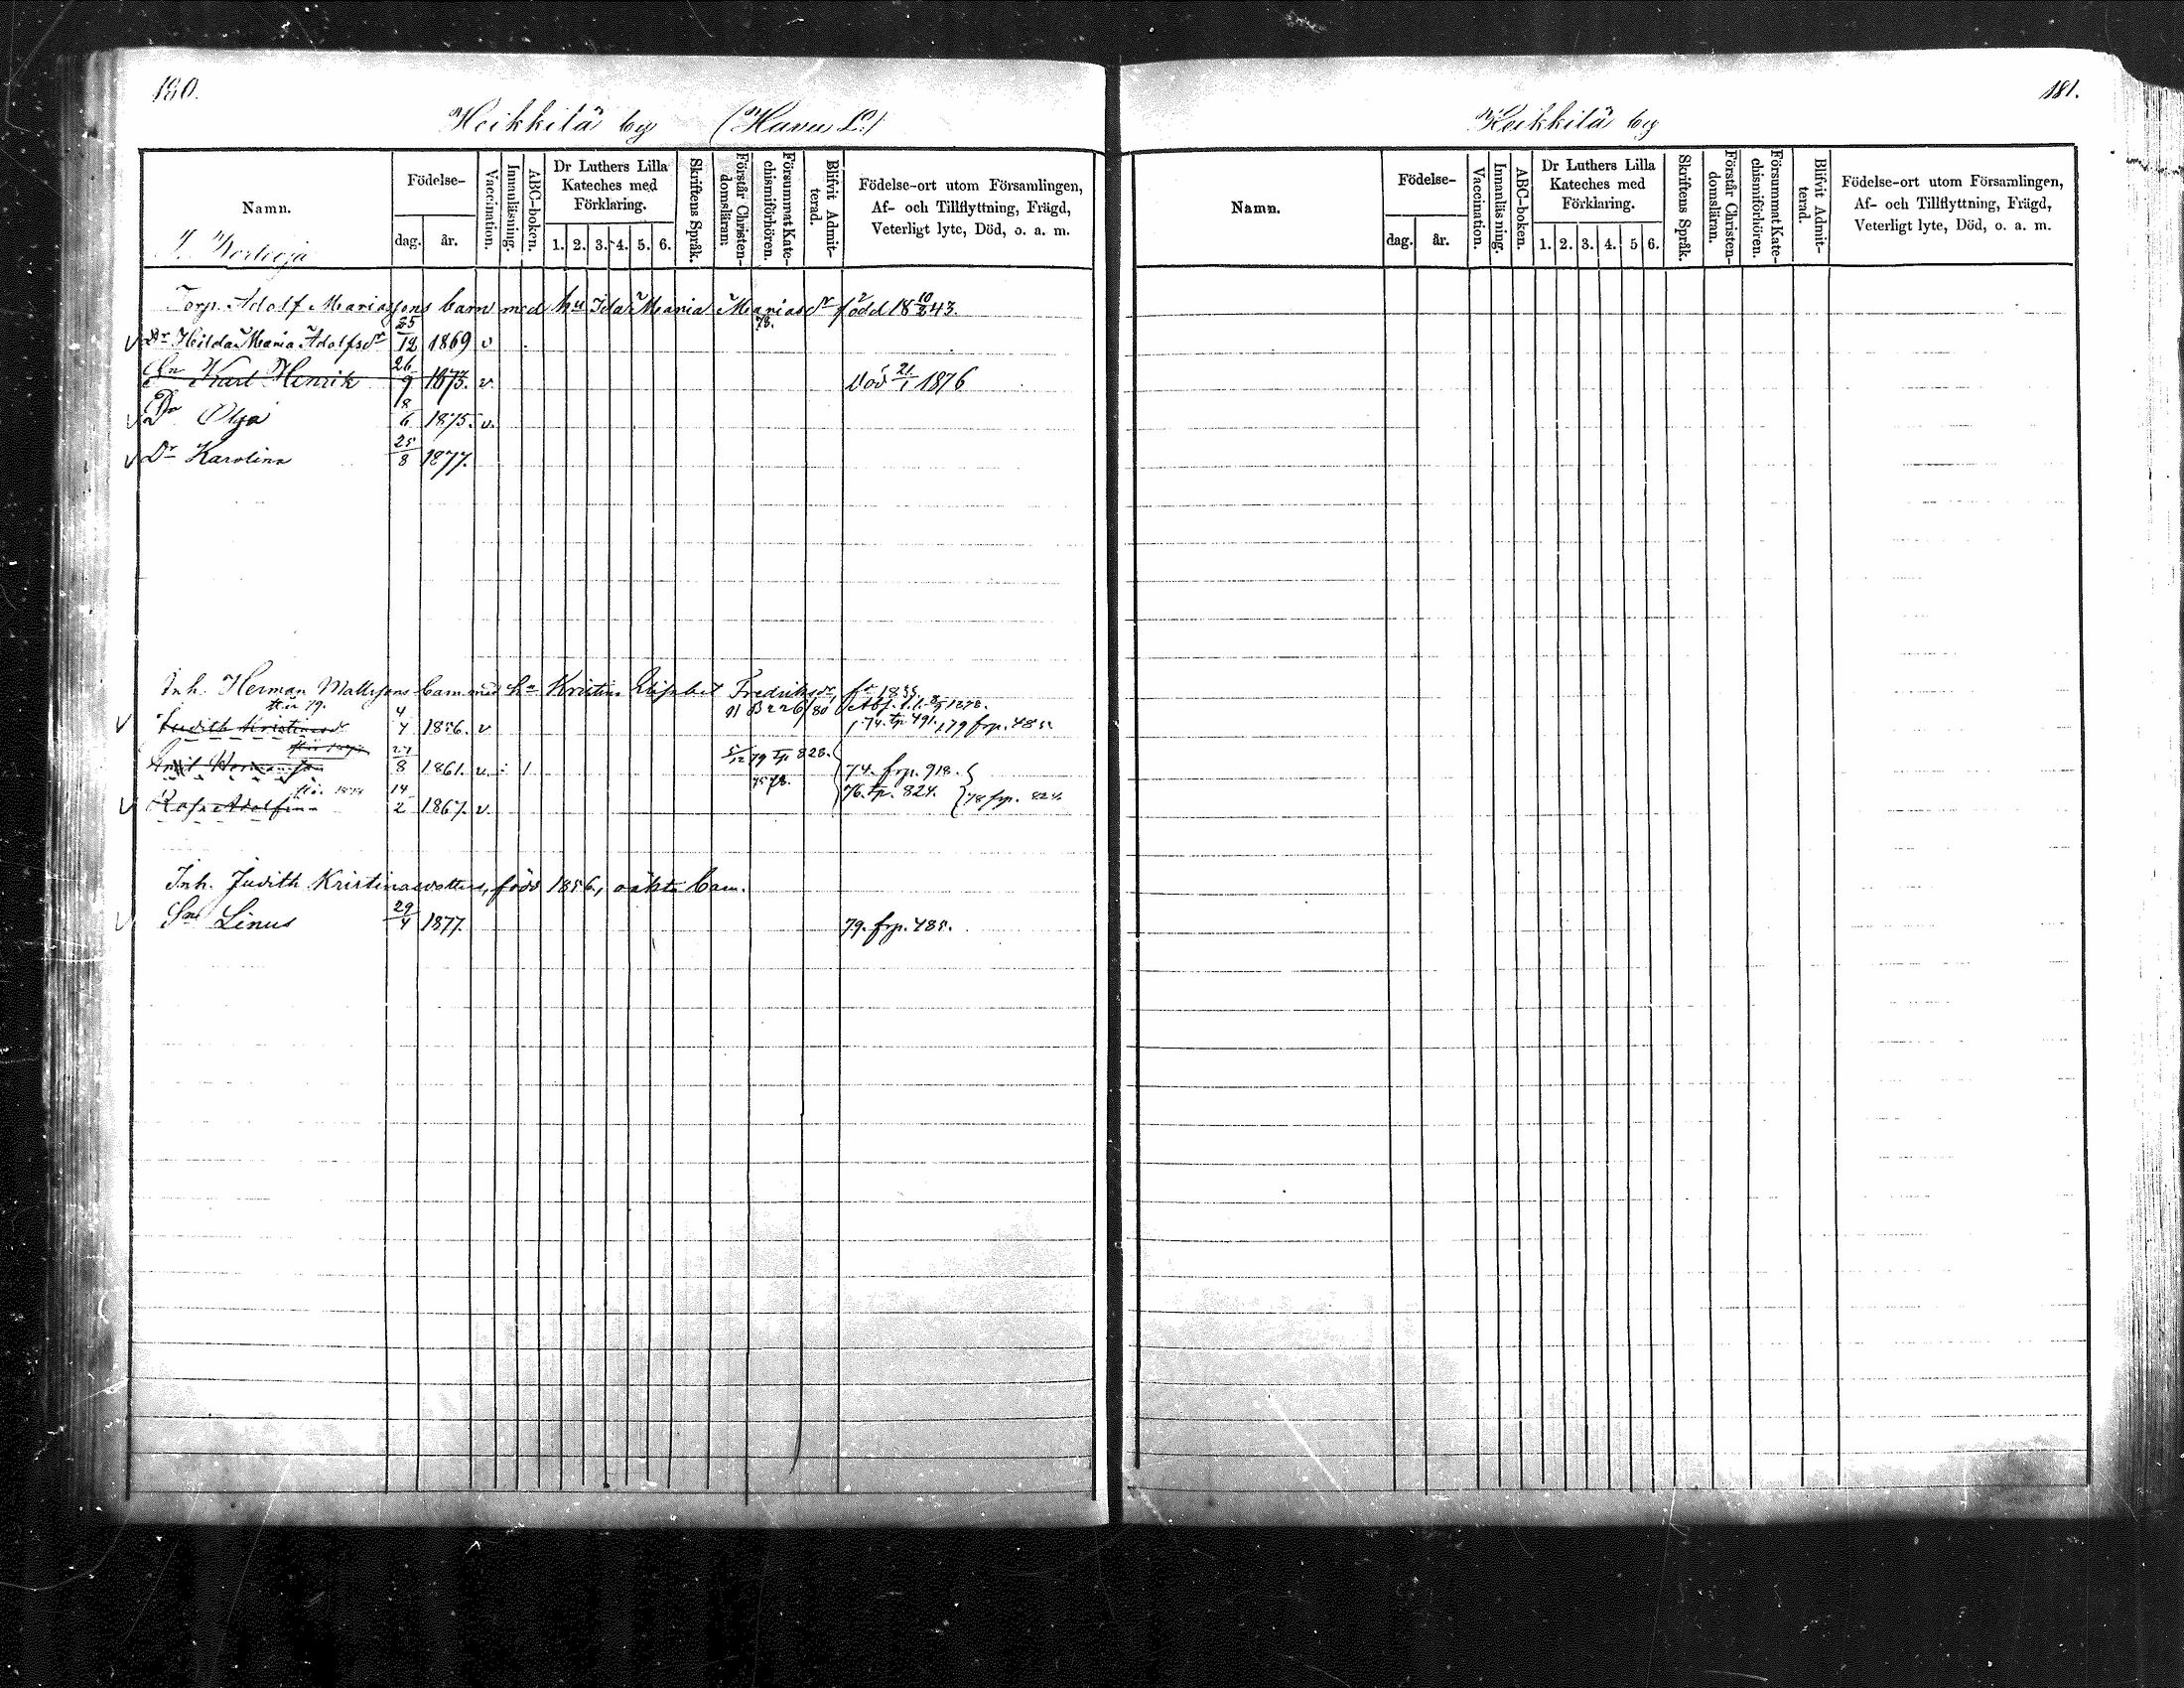 180.
Heikkilä by (Havu L.)
Namn.
Födelse-
dag.
år.
Vaccination.
Innanläsning.
ABC-boken.
Dr Luthers Lilla
Kateches med
Förklaring.
1. 2. 3. 4. 5. 6.
Skriftens Språk.
Förstår Christen-
domsläran.
Försummat Kate-
chismiförhören.
Blifvit Admit-
terad.
Födelse-ort utom Församlingen,
Af- och Tillflyttning, Frägd,
Veterligt lyte, Död, o. a. m.
Torp. Adolf Mariassons barn med hu Ida Maria Mariasdr född 18 10/2 43.
Dr Hilda Maria Adolfsdr 25/12 1869 v
Sn Karl Henrik 26/9 1873. v. Död 21/1 1876
Dr Olga 18/6 1875. v.
Dr Karolina 25/8 1877.
Inh. Herman Mattssons barn med hu Kristina Elisabet Fredriksdr, f. 1835
Judith Kristinasdr 4/4 1856. v 74. tp. 491. 79 frp. 485.
27/8 1861. v. 1 5/12 79 tp. 828. 74. frp. 918.
14/2 1867. v. 76. tp. 824. 78 frp. 824.
Inh. Judith Kristinasdotters, född 1856, oäkta barn.
Sn Linus 29/4 1877. 79. frp. 485.
181.
Heikkilä by
Namn.
Födelse-
dag.
år.
Vaccination.
Innanläsning.
ABC-boken.
Dr Luthers Lilla
Kateches med
Förklaring.
1. 2. 3. 4. 5 6.
Skriftens Språk.
Förstår Christen-
domsläran.
Försummat Kate-
chismiförhören.
Blifvit Admit-
terad.
Födelse-ort utom Församlingen,
Af- och Tillflyttning, Frägd,
Veterligt lyte, Död, o. a. m.